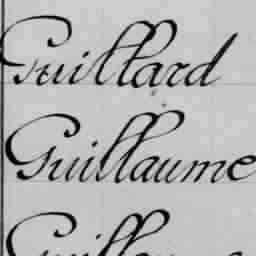 Guillard
Guillaume